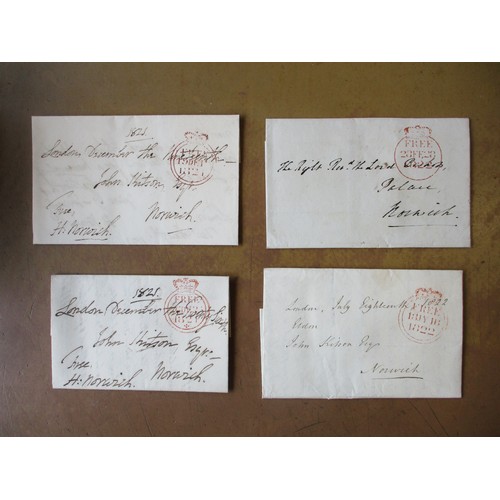 1821
London December the nineteenth
John Kitson Esqr
Free
Norwich.
H. Norwich.
FREE
1821
The Right Revd. the Lord Bishop,
Palace,
Norwich.
FREE
1821.
London December the
John Kitson Esqr.
Free
H. Norwich.
Norwich.
FREE
London, July Eighteenth 1822
John Kitson Esqr
Norwich
FREE
18 JY 18
1822